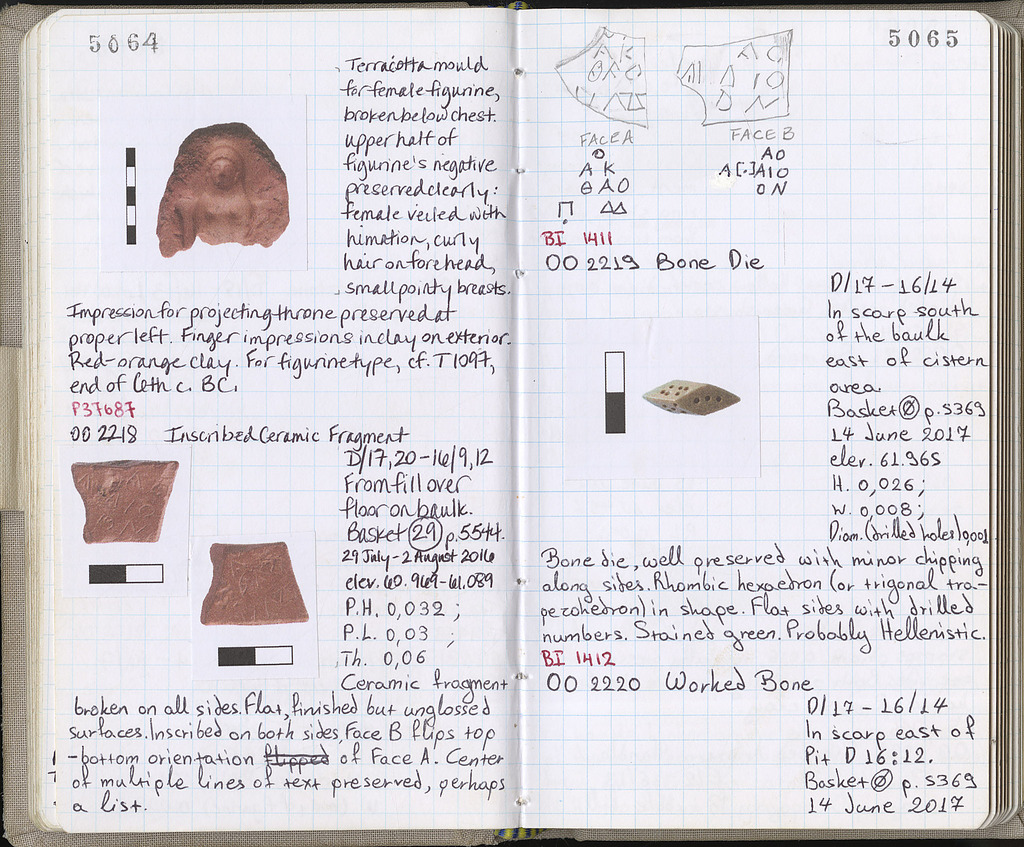 5064
Terracotta mould
for female figurine,
broken below chest.
upper half of
figurine's negative
preserved clearly:
female veiled with
himation, curly
hair on forehead,
small pointy breasts.
Impression for projecting throne preserved at
proper left. Finger impressions in clay on exterior.
Red-orange clay. For figurine type, cf. T1097,
end of 6th c. BC.
P37687
OO 2218 Inscribed Ceramic Fragment
D/17,20-16/9,12
From fill over
floor on baulk.
Basket 29 p.5544.
29 July-2 August 2016
elev. 60.969-61.089
P.H. 0,032 ;
P.L. 0,03 ;
Th. 0,06
Ceramic fragment
broken on all sides. Flat, finished but unglossed
surfaces. Inscribed on both sides, Face B flips top
-bottom orientation flipped of Face A. Center
of multiple lines of text preserved, perhaps
a list.
5065
FACE A
Ο
Α Κ
Θ Α Ο
Π ΔΔ
FACE B
Α Ο
Α [.] Α Ι Ο
Ο Ν
BI 1411
OO 2219 Bone Die
D/17-16/14
In scarp south
of the baulk
east of cistern
area.
Basket Ø p.5369
14 June 2017
elev. 61.965
H. 0,026;
W. 0,008;
Diam. (drilled holes) 0,001
Bone die, well preserved with minor chipping
along sides. Rhombic hexaedron (or trigonal tra-
pezohedron) in shape. Flat sides with drilled
numbers. Stained green. Probably Hellenistic.
BI 1412
OO 2220 Worked Bone
D/17-16/14
In scarp east of
Pit D 16:12.
Basket Ø p. 5369
14 June 2017